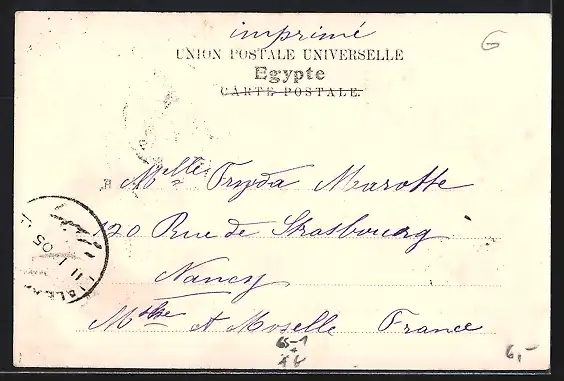 imprimé
G
UNION POSTALE UNIVERSELLE
Egypte
CARTE POSTALE.
Melle Fryda Marotte
120 Rue de Strasbourg
Nancy
Mthe et Moselle France
11 I 05
65-1
6,-